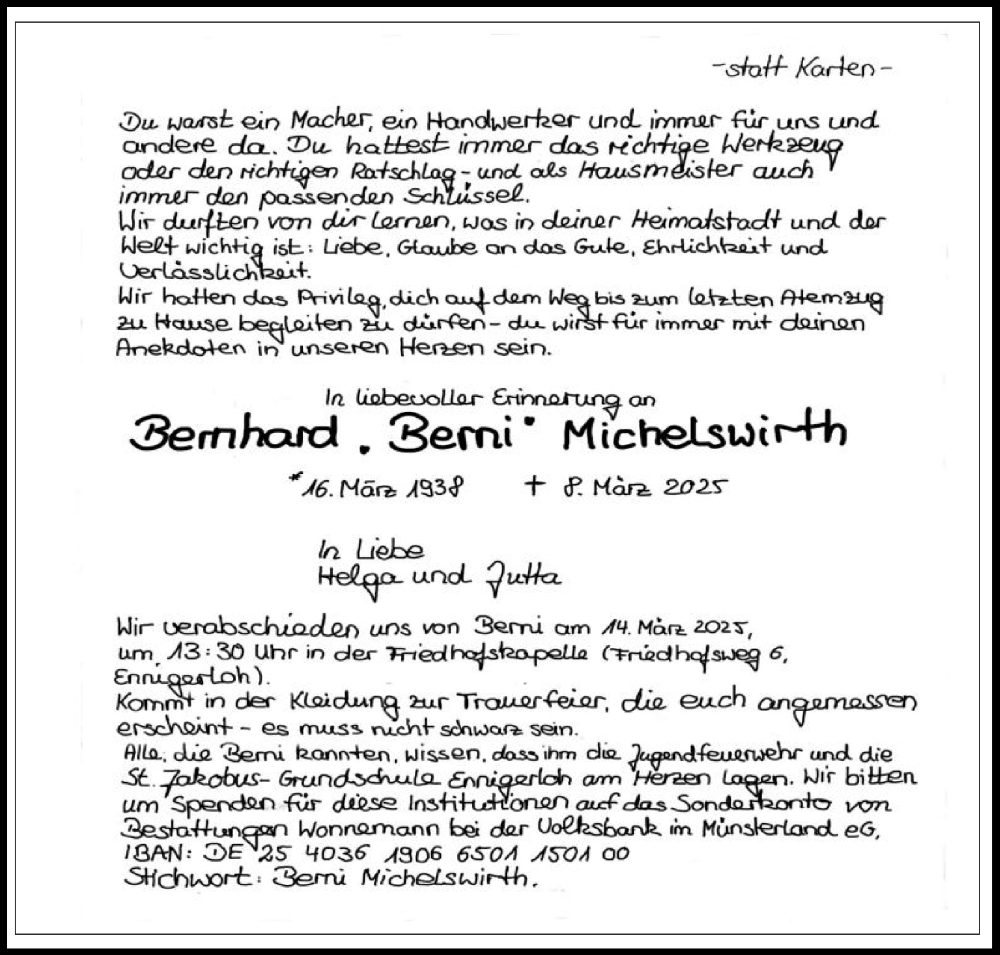 -statt Karten-
Du warst ein Macher, ein Handwerker und immer für uns und
andere da. Du hattest immer das richtige Werkzeug
oder den richtigen Ratschlag - und als Hausmeister auch
immer den passenden Schlüssel.
Wir durften von dir lernen, was in deiner Heimatstadt und der
Welt wichtig ist: Liebe, Glaube an das Gute, Ehrlichkeit und
Verlässlichkeit.
Wir hatten das Privileg, dich auf dem Weg bis zum letzten Atemzug
zu Hause begleiten zu dürfen - du wirst für immer mit deinen
Anekdoten in unseren Herzen sein.
In liebevoller Erinnerung an
Bernhard „Berni“ Michelswirth
*16. März 1938 † 8. März 2025
In Liebe
Helga und Jutta
Wir verabschieden uns von Berni am 14. März 2025,
um 13:30 Uhr in der Friedhofskapelle (Friedhofsweg 6,
Ennigerloh).
Kommt in der Kleidung zur Trauerfeier, die euch angemessen
erscheint - es muss nicht schwarz sein.
Alle, die Berni kannten, wissen, dass ihm die Jugendfeuerwehr und die
St. Jakobus-Grundschule Ennigerloh am Herzen lagen. Wir bitten
um Spenden für diese Institutionen auf das Sonderkonto von
Bestattungen Wonnemann bei der Volksbank im Münsterland eG,
IBAN: DE 25 4036 1906 6501 1501 00
Stichwort: Berni Michelswirth.